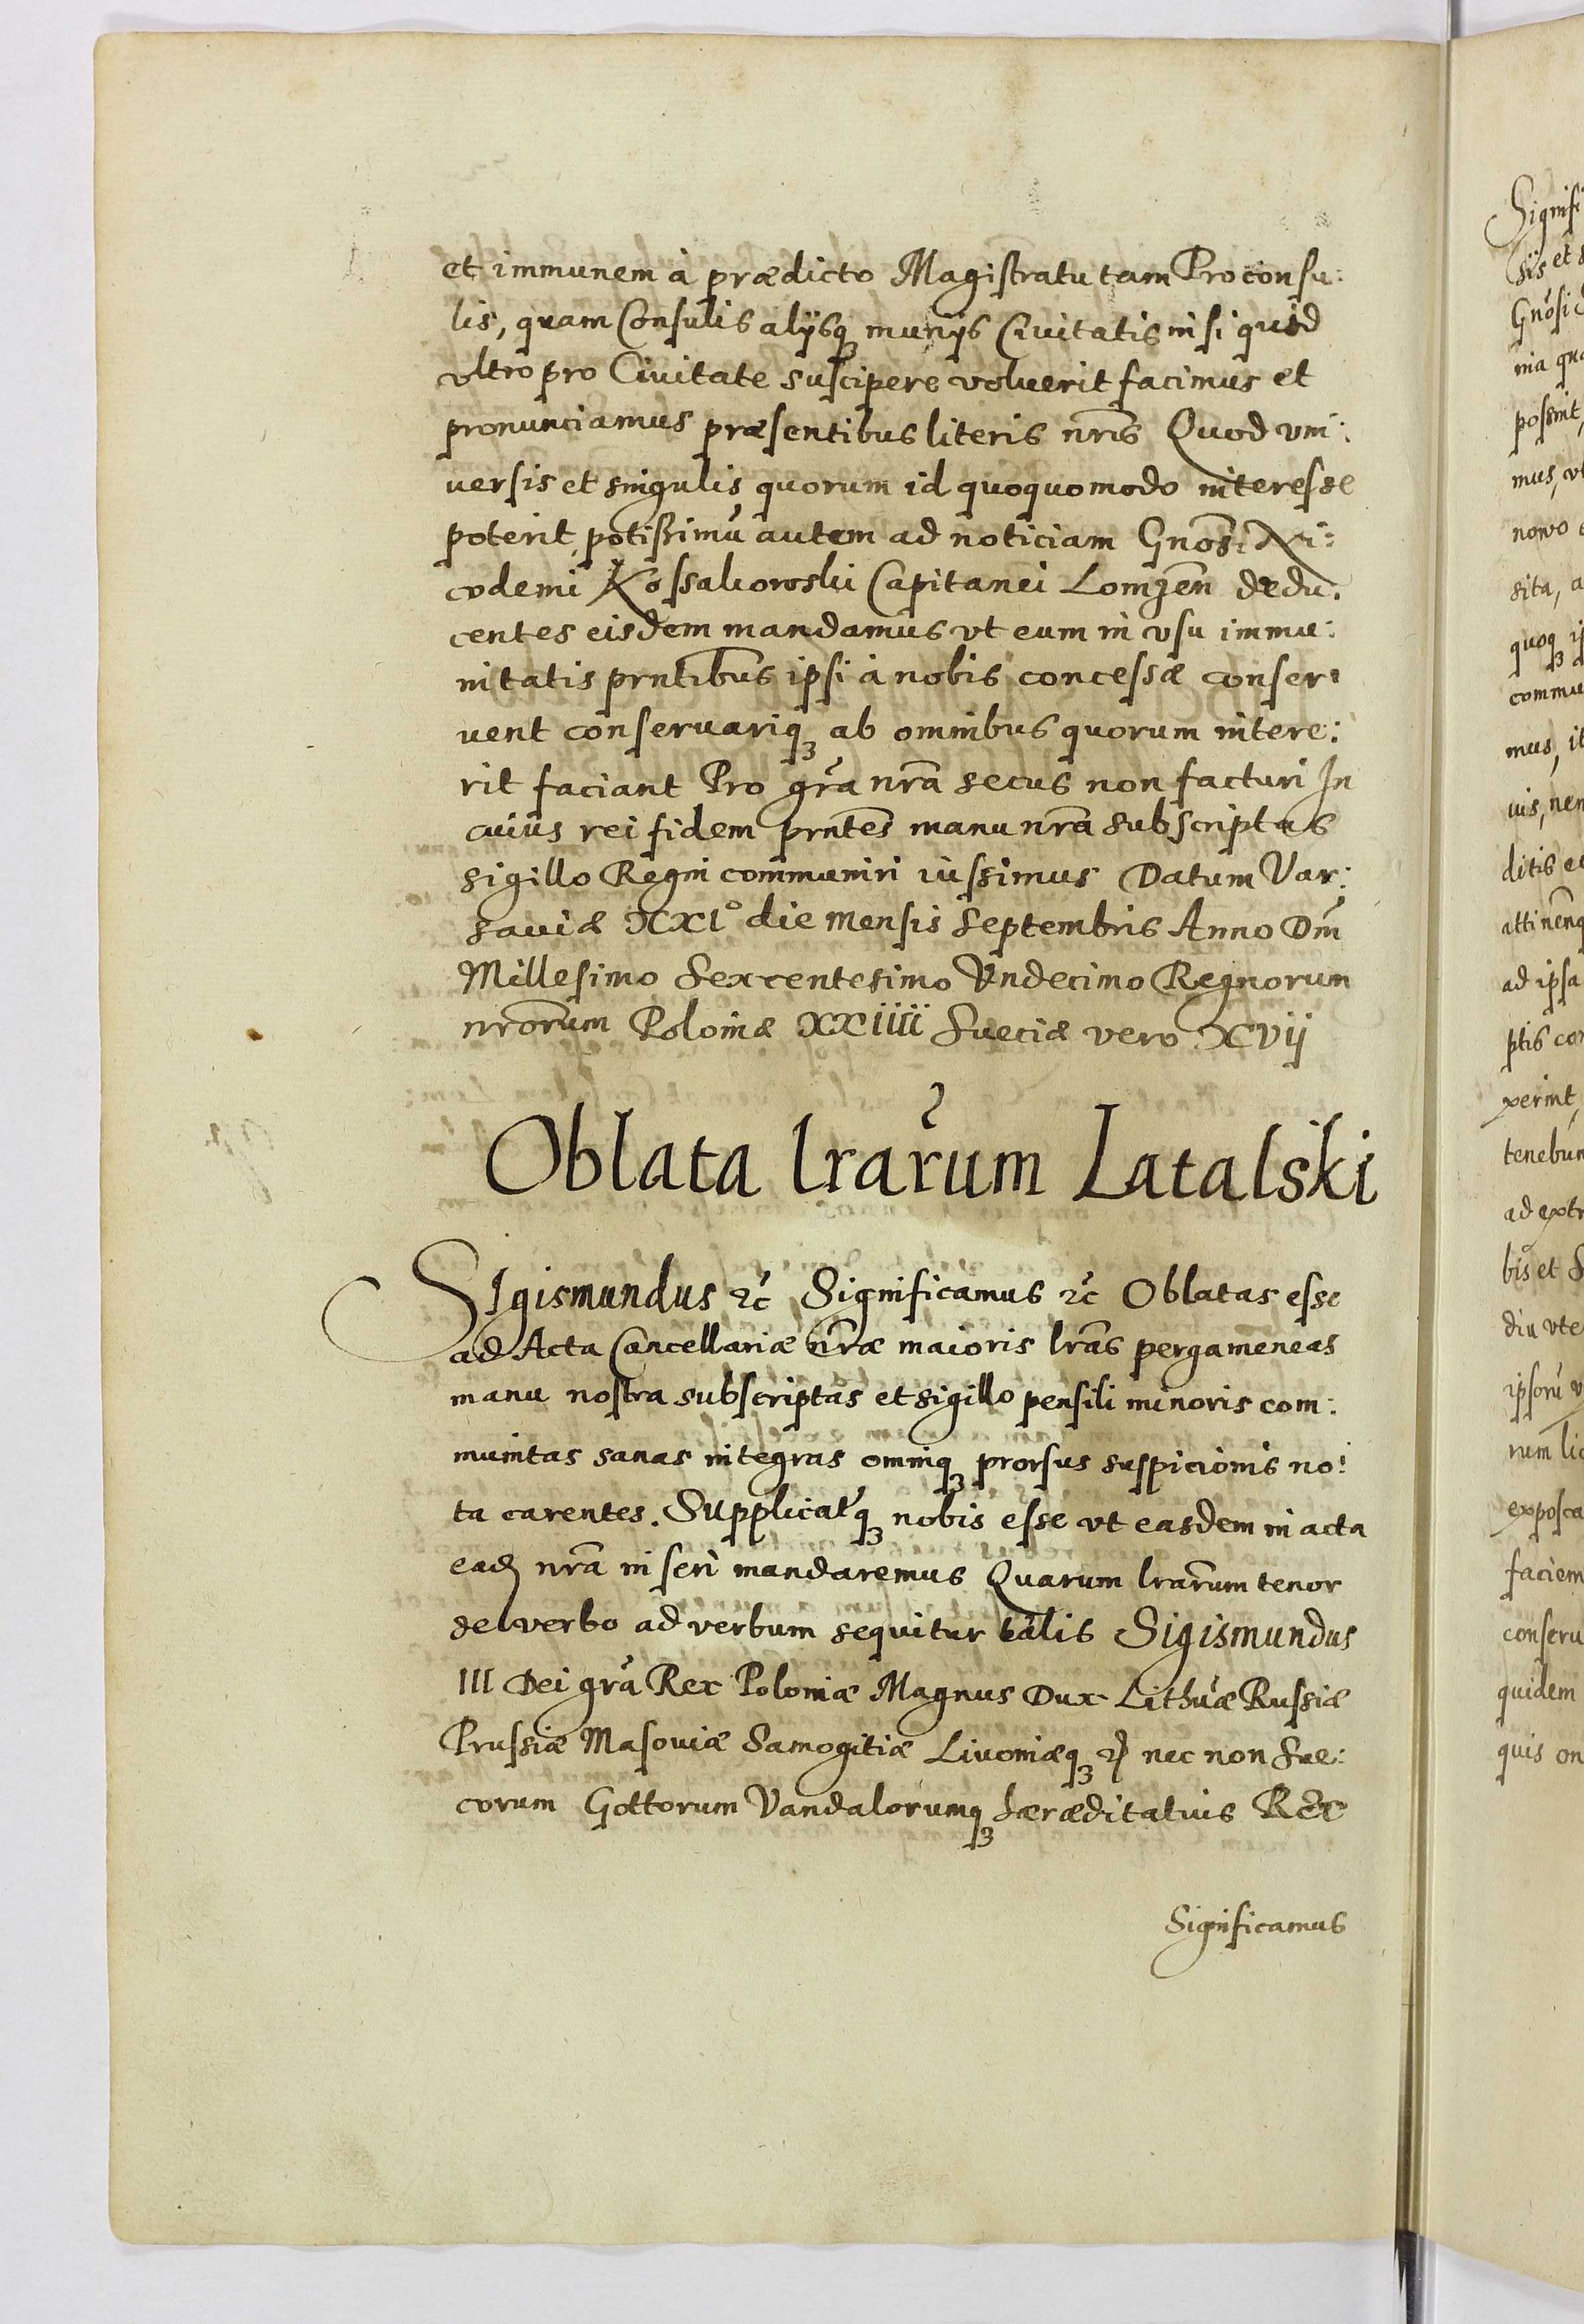 et immunem à prædicto Magistratu tam Proconsu:
lis, quam Consulis alijsq3 munijs Ciuitatis nisi quid
vltro pro Ciuitate suscipere voluerit facimus et
pronunciamus præsentibus literis nr̃is Quod vni:
uersis et singulis quorum id quoquomodo interesse
poterit, potissimũ autem ad noticiam Gnõsi Ni:
codemi Kossakowski Capitanei Lomzeñ dedu:
centes eisdem mandamus vt eum in vsu immu:
nitatis prñtibus ipsi à nobis concessæ conser:
uent conseruariq3 ab omnibus quorum intere:
rit faciant Pro gr̃a nr̃a secus non facturi In
cuius rei fidem prñtes manu nr̃a subscriptas
sigillo Regni communiri iussimus Datum Var:
sauiæ XXI° die mensis Septembris Anno Dñi
Millesimo Sexcentesimo Vndecimo Regnorum
nr̃orum Poloniæ XXiiii Sueciæ vero XVij
Oblata lr̃arum Latalski
SIgismundus &c̃ Significamus &c̃ Oblatas esse
ad Acta Cancellariæ nr̃æ maioris lr̃as pergameneas
manu nostra subscriptas et sigillo pensili minoris com:
munitas sanas integras omniq3 prorsus suspicionis no:
ta carentes. Supplicat'q3 nobis esse vt easdem in acta
ead nr̃a inseri mandaremus Quarum lr̃arum tenor
de verbo ad verbum sequitur talis Sigismundus
III Dei gr̃a Rex Poloniæ Magnus Dux Lithũæ Russiæ
Prussiæ Masouiæ Samogitiæ Liuoniæq3 &c nec non Sue:
corum Gottorum Vandalorumq3 hæræditatius Rex
Significamus
Signifi
sijs et s
Gnõsi
nia qua
possint,
mus, vt
nowo
sita, a
quoq3 ip
commu
mus, it
uis, nem
ditis e
attineñq
ad ipsa
ptis con
xerint,
tenebun
ad extr
bis et S
diu vte
ipsorũ v
rum lic
exposca
faciem
conseru
quidem
quis on